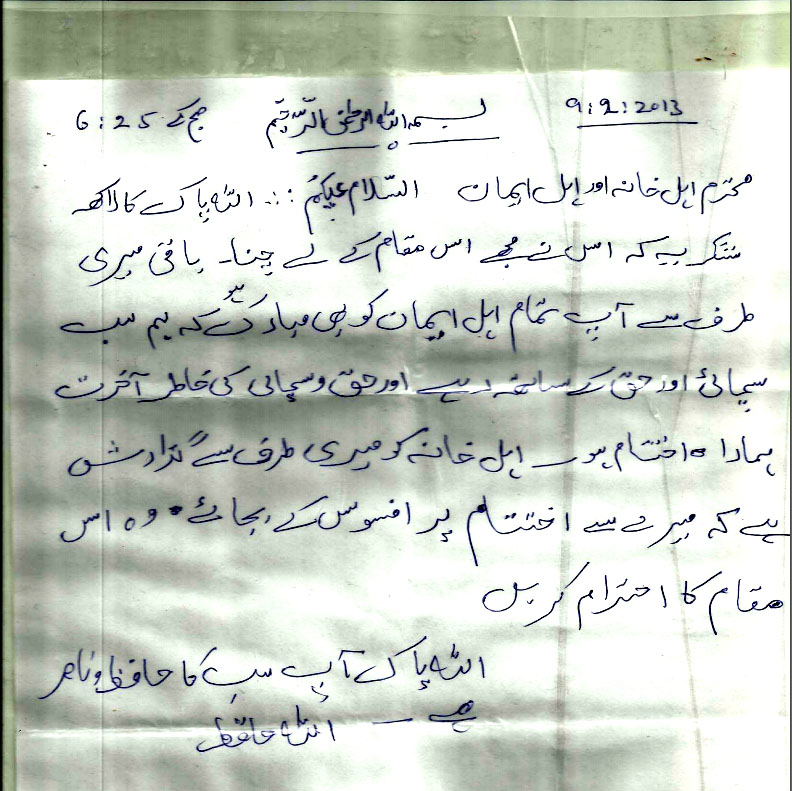 9:2:2013 بسم اللہ الرحمٰن الرّحیم صبح کے 6:25
محترم اہل خانہ اور اہل ایمان السّلام علیکم ... اللہ پاک کا لاکھ
شکر یہ کہ اس نے مجھے اس مقام کے لے چنا۔ باقی میری
طرف سے آپ تمام اہل ایمان کو بھی مبارک ہو کے کہ ہم سب
سچائی اور حق کے ساتھ رہے اور حق و سچائی کی خاطر آخرت
ہمارا اختتام ہو۔ اہل خانہ کو میری طرف سے گذارش
ہے کہ میرے سے اختتام پر افسوس کے بجائے وہ اس
مقام کا احترام کریں
اللہ پاک آپ سب کا حافظ و ناصر
ہے ـ اللہ حافظ